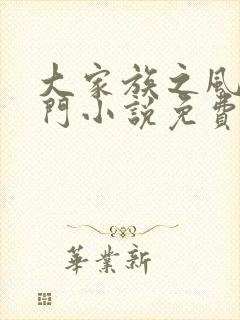 大家族之風
門小說免費
華業新